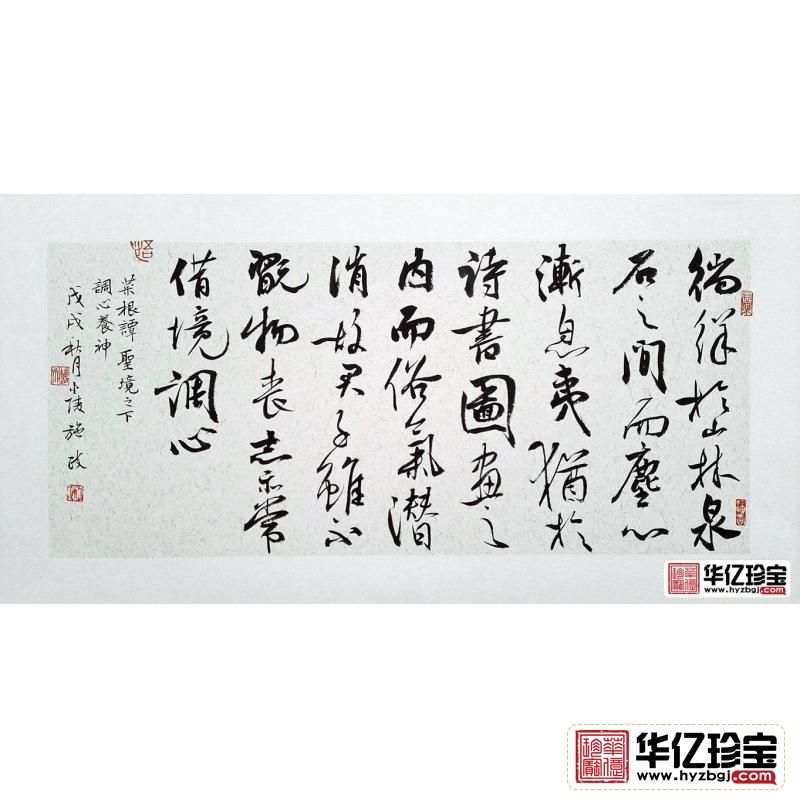 徜徉於山林泉
石之間而塵心
漸息夷猶於
詩書圖畫之
内而俗氣潛
消故君子雖不
翫物喪志亦常
借境調心
菜根譚 聖境之下
調心養神
戊戌秋月小陵施政
華億珍寶
华亿珍宝
www.hyzbgj.com
華億珍寶
华亿珍宝
www.hyzbgj.com